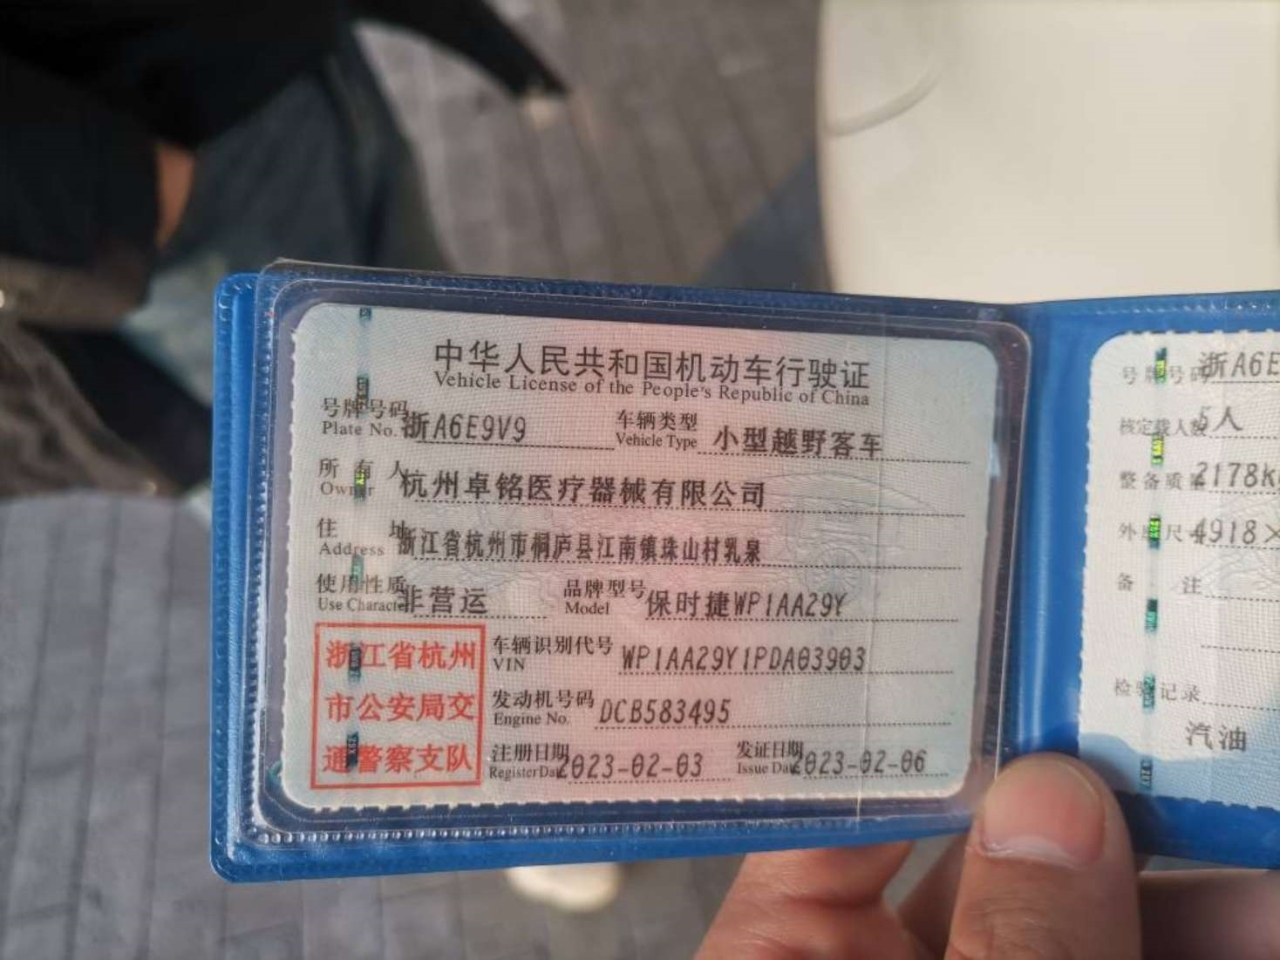 中华人民共和国机动车行驶证
Vehicle License of the People's Republic of China
号牌号码 浙A6E9V9 车辆类型 小型越野客车
Plate No. Vehicle Type
所有人 杭州卓铭医疗器械有限公司
Owner
住址 浙江省杭州市桐庐县江南镇珠山村乳泉
Address
使用性质 非营运 品牌型号 保时捷WP1AA29Y
Use Character Model
浙江省杭州
市公安局交
通警察支队
车辆识别代号 WP1AA29Y1PDA03903
VIN
发动机号码 DCB583495
Engine No.
注册日期 2023-02-03 发证日期 2023-02-06
Register Date Issue Date
号牌号码 浙A6E
核定载人数 5人
整备质量 2178k
外廓尺 4918×
备注
检验记录
汽油